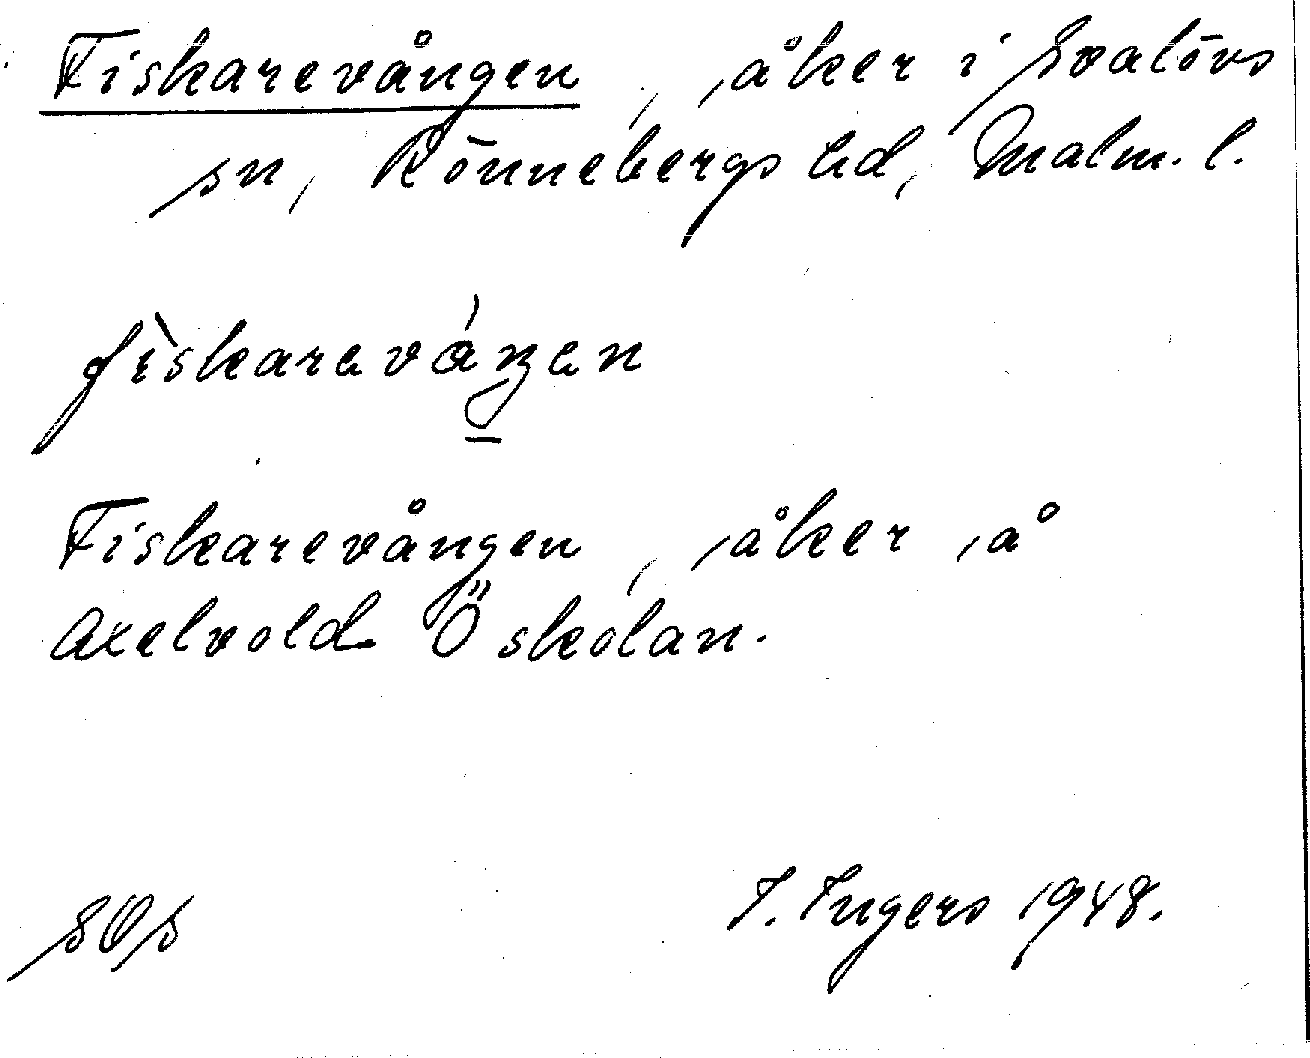 Fiskarevången, åker i Svalövs
sn, Rönnebergs hd, Malm. l.
fìskaraváŋen
Fiskarevången, åker å
Axelvold Ö skolan.
I. Ingers 1948.